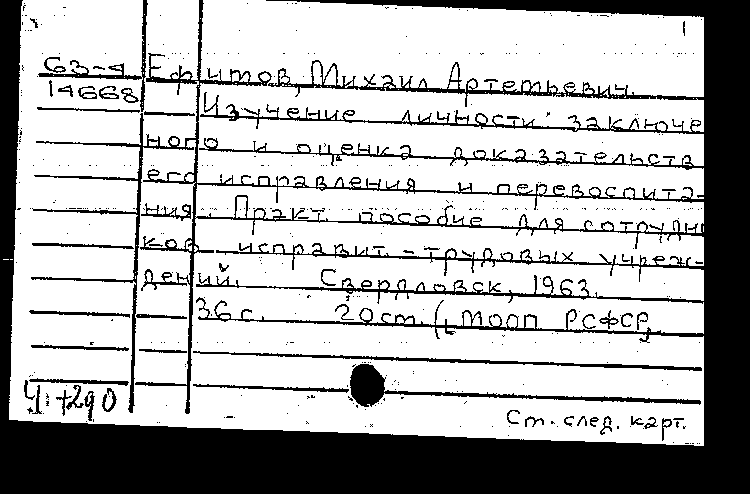 1
63-4 Ефимов, Михаил Артемьевич.
14668 Изучение личности заключе
ного и оценка доказательств
его исправления и перевоспита-
ния. Практ. пособие для сотрудн
ков исправит.-трудовых учреж-
дений. Свердловск, 1963.
36 с. 20 см. ([МООП РСФСР,
Ст. след. карт.